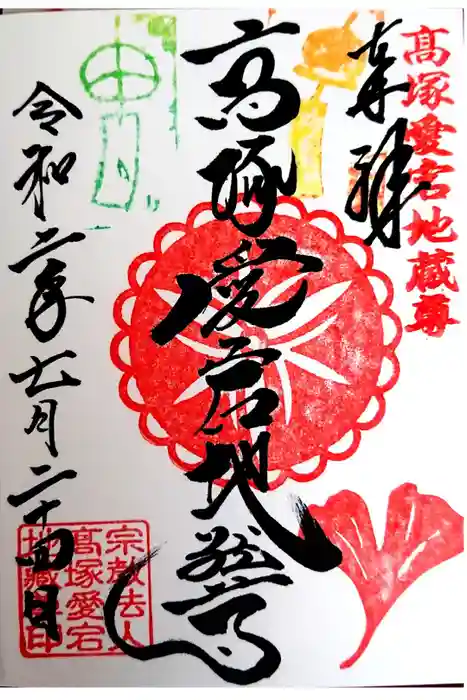 髙塚愛宕地蔵尊
奉拝
高塚愛宕地蔵尊
令和二年七月二十四日
宗教法人
髙塚愛宕
地藏尊印